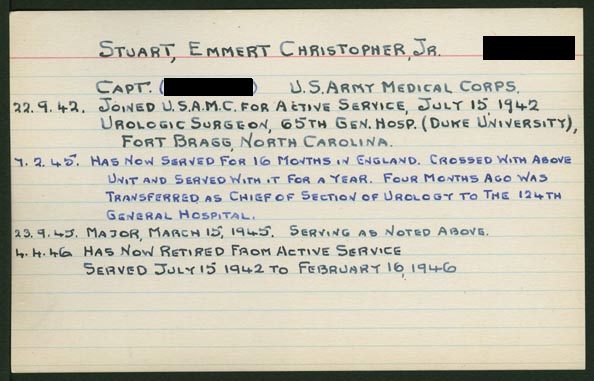 STUART, EMMERT CHRISTOPHER, JR.
CAPT. ( ) U.S. ARMY MEDICAL CORPS.
22.9.42. JOINED U.S.A.M.C. FOR ACTIVE SERVICE, JULY 15 1942
UROLOGIC SURGEON, 65TH GEN. HOSP. (DUKE UNIVERSITY),
FORT BRAGG, NORTH CAROLINA.
7.2.45. HAS NOW SERVED FOR 16 MONTHS IN ENGLAND. CROSSED WITH ABOVE
UNIT AND SERVED WITH IT FOR A YEAR. FOUR MONTHS AGO WAS
TRANSFERRED AS CHIEF OF SECTION OF UROLOGY TO THE 124TH
GENERAL HOSPITAL.
23.9.45. MAJOR, MARCH 15, 1945. SERVING AS NOTED ABOVE.
4.4.46 HAS NOW RETIRED FROM ACTIVE SERVICE
SERVED JULY 15 1942 TO FEBRUARY 16, 1946